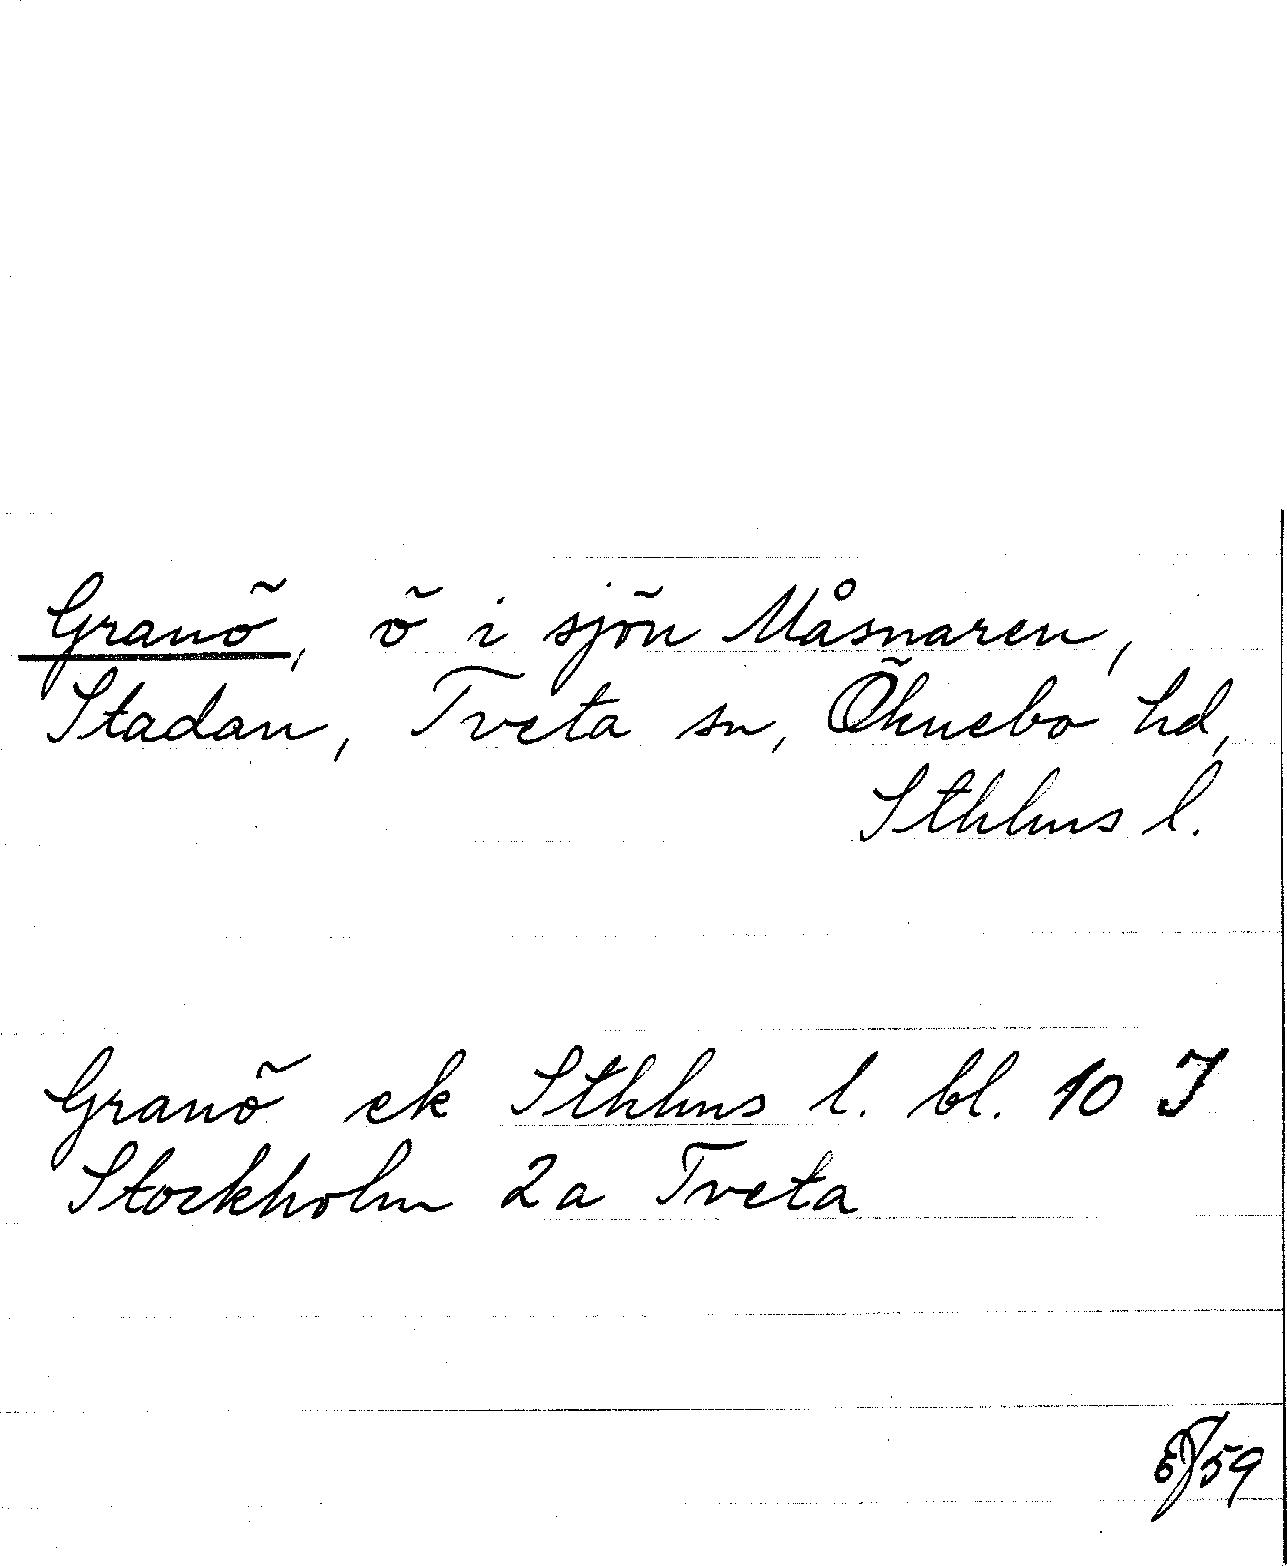 Granö, ö i sjön Måsnaren,
Stadan, Tveta sn, Öknebo hd,
Sthlms l.
Granö ek Sthlms l. bl. 10 I
Stockholm 2a Tveta
59